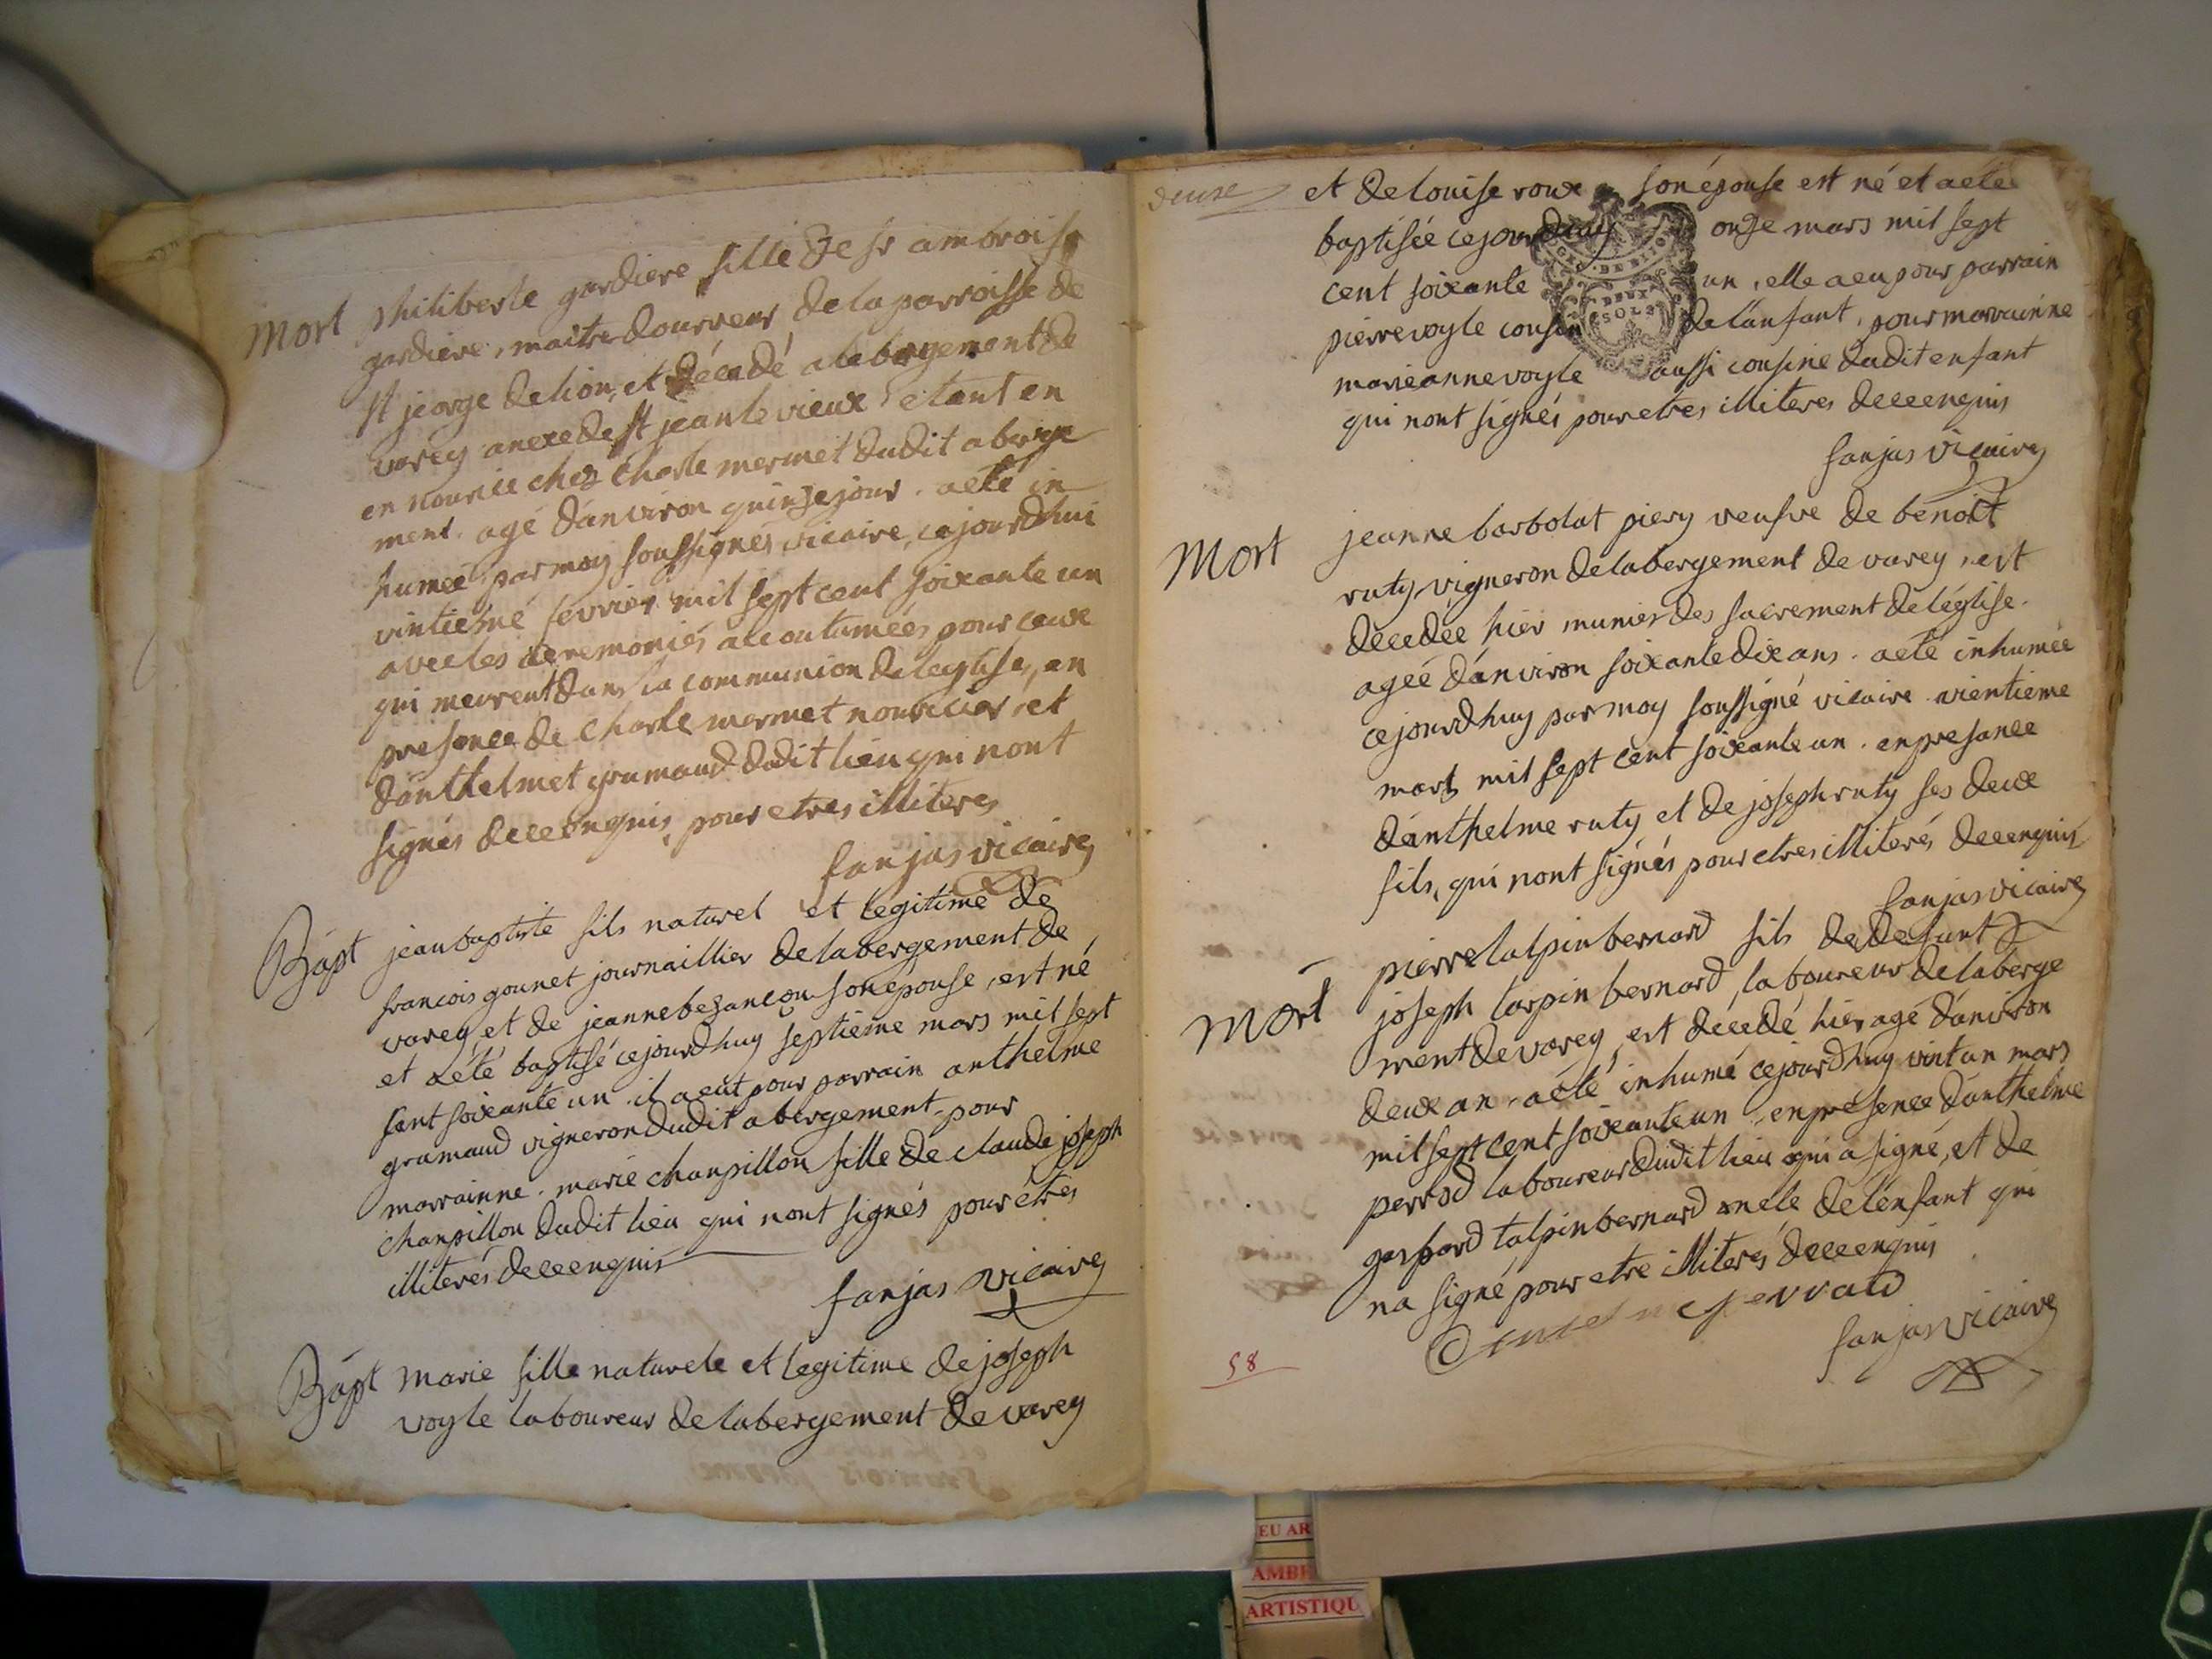 mort philiberte gardiere fille de sr ambroise
gardiere, maitre dourreur de la parroisse de
st jeorge de lion, et décédé a labergement de
varey anexe de st jean le vieux etant en
en nourice chez charle mermet dudit aberge
ment. agé d'anviron quinze jour. aeté in
humée par moy soussignés vicaire, cejourdhui
vintiéme fevrier mil sept cent soixante un
avec les ceremoniés accoutumées pour ceux
qui meurent dans la communion de leglise, en
presence de charle mermet nouricier, et
danthelmet gramaud dudit lieu qui nont
signés de ce enquis, pour etres illiteres
fanjas vicaire
Bapt jean baptiste fils naturel et legitime de
francois gounet journaillier de labergement de
varey et de jeanne bezancon son épouse, est né
et aété baptisé cejourdhuy septieme mars mil sept
sant soixante un il a eut pour parrain anthelme
gramaud vigneron dudit abergement, pour
marrainne. marie chanpillon fille de claude joseph
chanpillon dudit lieu qui nont signés pour étres
illiterés de ce enquis
fanjas vicaire
Bapt marie fille naturele et legitime de joseph
voyle laboureur de labergement de varey
et de louise roux son épouse est né et aeté
baptisée cejourdhuy onze mars mil sept
cent soixante un, elle a eu pour parrain
pierre voyle cousin de l'anfant, pour marrainne
marie anne voyle aussi cousine dudit enfant
qui nont signés pour etres illiteres de ce enquis
DEUX
SOLS
fanjas vicaire
Mort jeanne barbolat piery veufve de benoit
ruty vigneron de labergement de varey, est
decedée hier munies des sacrement de léglise.
agée d'anviron soixante dix ans. aeté inhumée
cejourdhuy par moy soussigné vicaire vientieme
mars mil sept cent soixante un. en presance
d'anthelme ruty et de joseph ruty ses deux
fils, qui nont signés pour etres illiterés de ce enquis
fanjas vicaire
Mort pierre talpin bernard fils de defunt
joseph tarpin bernard, laboureur de laberge
ment de varey, est décédé hier agé d'anviron
deux an, aeté inhumé cejourdhuy vint un mars
mil sept cent soixante un, en présence d'anthelme
perrod laboureur dudit lieu qui a signé, et de
gaspard talpin bernard oncle de lenfant qui
na signé pour etre illiterés de ce enquis
fanjas vicaire
58
EU AR
AMBE
ARTISTIQU